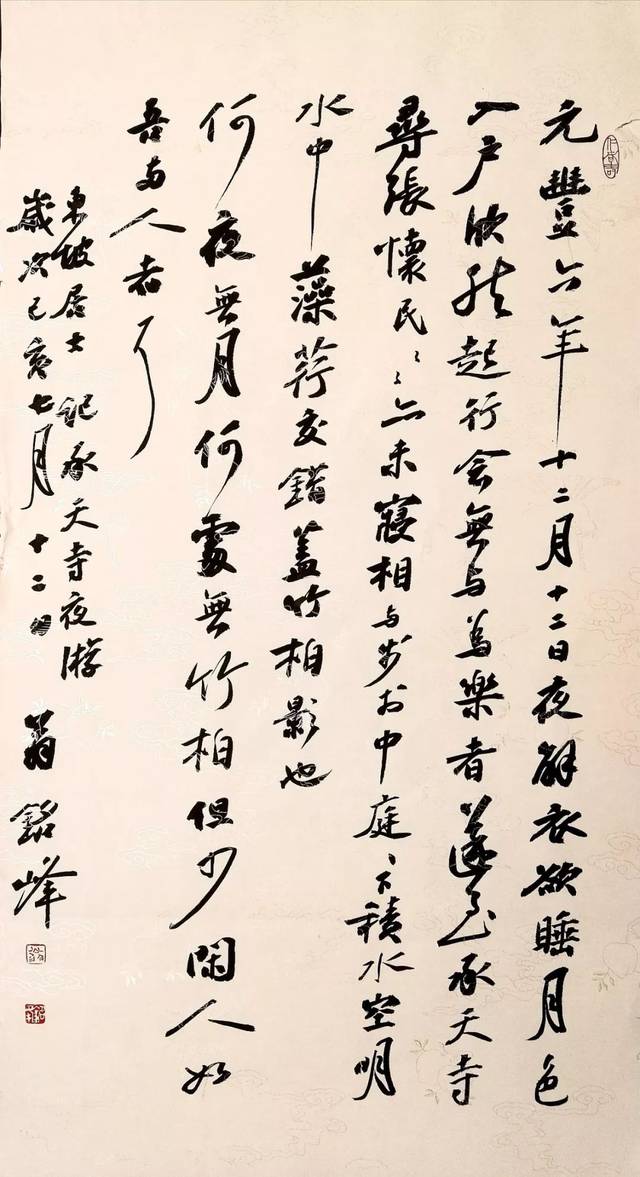 元豐六年十二月十二日夜解衣欲睡月色
入戶欣然起行念無与為樂者遂至承天寺
尋張懷民〻亦未寢相与步於中庭〻下積水空明
水中藻荇交錯蓋竹柏影也
何夜無月何處無竹柏但少閑人如
吾兩人者耳
東坡居士記承天寺夜游
歲次己亥七月十二日 翁銘峰